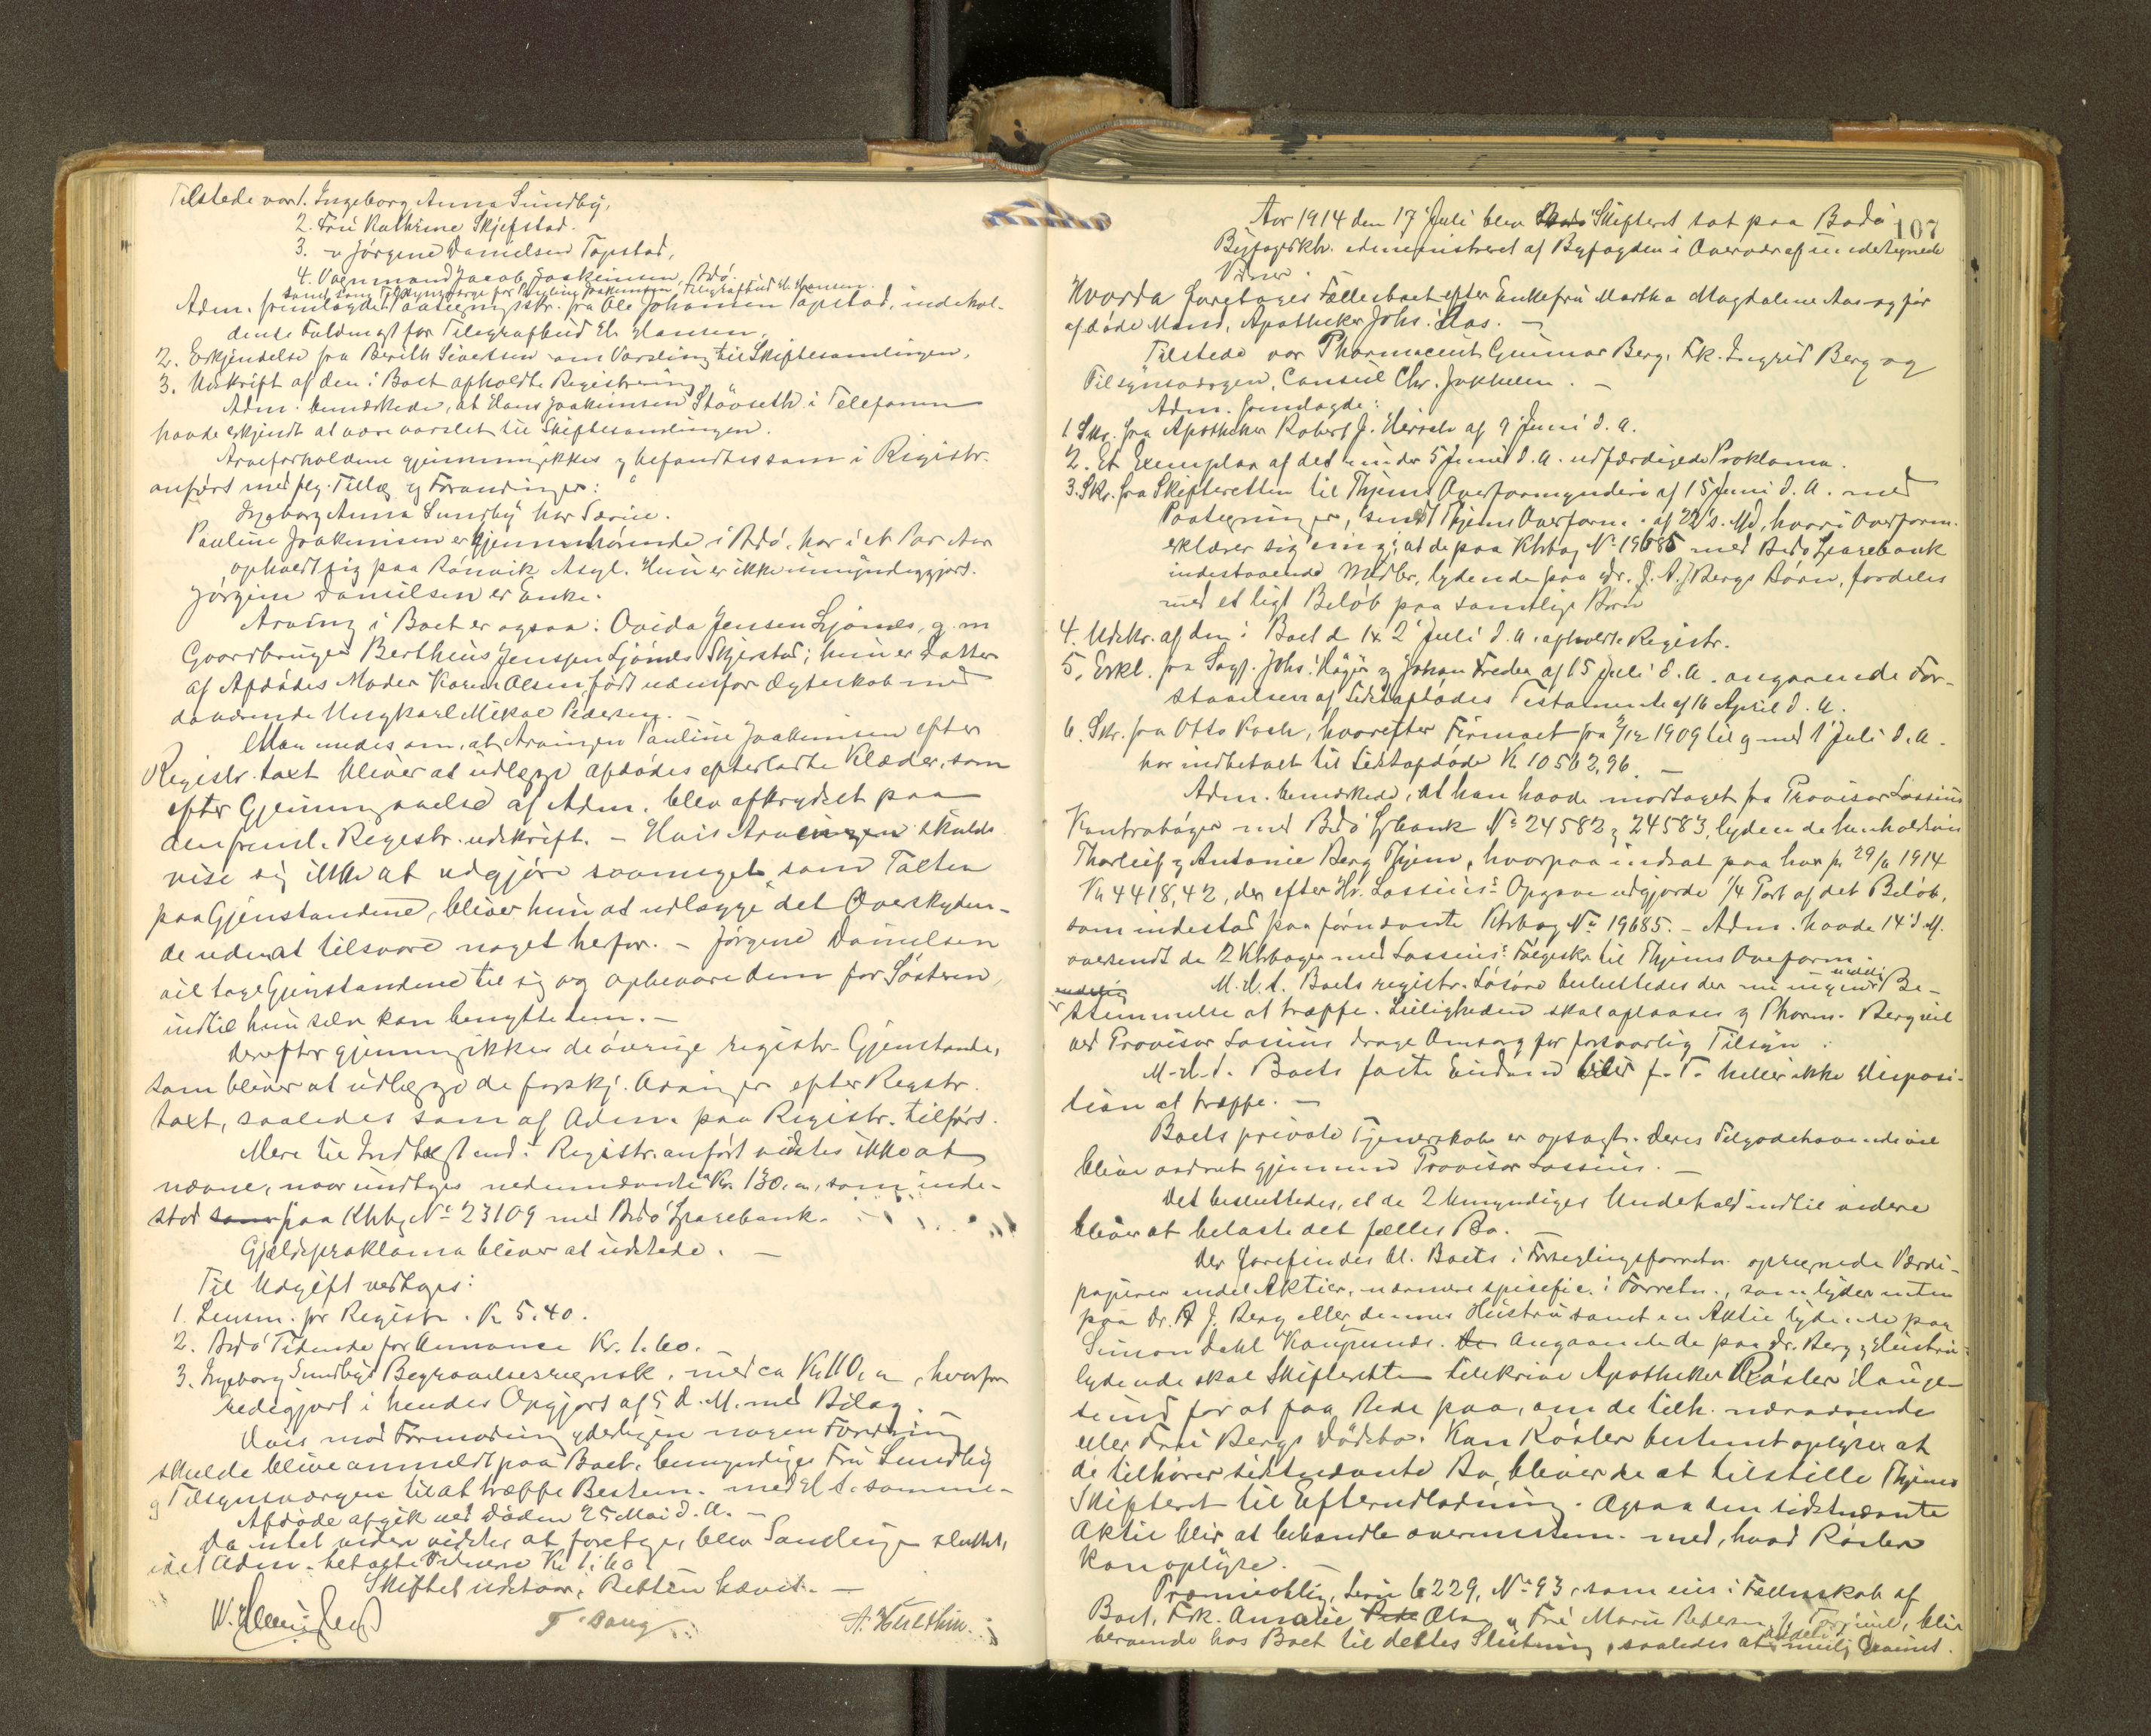 Tilstede var 1. Ingeborg Anna Sundby,
2. Fru Kathrine Skjefstad.
3. " Jørgine Danielsen Tapstad,
4. Vognmand Jacob Joakimsen, Bdø.
samt som Tilsynsværge for Pauline Joakimsen, Telegrafbud H. Hansen.
Adm. fremlagde: 1. Paategningsskr. fra Ole Johansen Tapstad, indehol-
dende Fuldmagt for Telegrafbud H. Hansen.
2. Erkjendelse fra Berith Sivertsen om Varsling til Skiftesamlingen,
3. Udskrift af den i Boet afholdte Registrering.
Adm. bemærkede, at Hans Joakimsen Støvseth i Telefonen
havde erkjendt at være varslet til Skiftesamlingen.
Arveforholdene gjennemgikkes og befandtes som i Registr.
anført med flg. Tillæg og Forandringer:
Ingeborg Anna Sundby har Særeie.
Pauline Joakimsen er hjemmehørende i Bdø, har i et Par Aar
opholdt sig paa Rønvik Asyl. Hun er ikke umyndiggjort.
Jørgine Danielsen er Enke.
Arving i Boet er ogsaa: Ovida Jensen Ljønes, g. m.
Gaardbruger Bertheus Jenssen Ljønes Skjerstad; hun er Datter
af Afdødes Moder Karen Olsen født udenfor Ægteskab med
daværende Ungkarl Mikal Pedersen.
Man enedes om, at Arvingen Pauline Joakimsen efter
Registr. taxt bliver at udlægge afdødes efterladte Klæder, som
efter Gjennemgaaelse af Adm. blev afkrydset paa
den freml. Registr. udskrift. – Hvis Arvingen skulde
vise sig ikke at udgjøre saameget som Taxten
paa Gjenstandene, bliver hun at udlægge det Overskyden-
de uden at tilsvare noget herfor. – Jørgine Danielsen
vil tage Gjenstandene til sig og opbevare dem for Søsteren,
indtil hun selv kan benytte dem. –
Derefter gjennemgikkes de øvrige registr. Gjenstande,
som bliver at udlægge de forskj. Arvinger efter Registr.
taxt, saaledes som af Adm. paa Registr. tilført.
Mere til Indtægt end i Registr. anført vidstes ikke at
nævne, naar undtages nedennævnte ca Kr. 130, som inde-
stod paa Khbg No 23109 med Bdø Sparebank.
Gjældsproklama bliver at udstede. –
Til Udgift vedtoges:
1. Lensm. for Registr. Kr 5.40.
2. Bdø Tidende for Annonce Kr. 1.60.
3. Ingeborg Sundbys Begravelsesregnsk. med ca Kr. 110, hvorfor
redegjort i hendes Opgjørs af 5 d. M. med Bilag.
Hvis mod Formodning yderligere nogen Fordring
skulde blive anmeldt paa Boet, bemyndiges Fru Sundby
og Tilsynsværgen til at træffe Bestem. med H. t. samme.
Afdøde afgik ved Døden 25 Mai d. A. –
Da intet videre vidstes at foretage, blev Samlingen sluttet,
idet Adm. betalte Vidnerne Kr 1.60
Skiftet udstaar, Retten hævet. –
T. Saug
A. Hulthin.
107
Aar 1914 den 17 Juli blev Skifteret sat paa Bodø
Byfogedktr. administreret af Byfogden i Overvær af undertegnede
Vidner.
Hvorda foretages Fællesboet efter Enkefru Martha Magdalene Aas og før
afdøde Mand, Apotheker Johs. Aas. –
Tilstede var Pharmaceut Gunnar Berg, Frk. Ingrid Berg og
Tilsynsværgen, Consul Chr. Jakhelln. –
Adm. fremlagde:
1. Skr. fra Apotheker Robert J. Hirsch af 9 Juni d. A.
2. Et Exemplar af det under 5 Juni d. A. udfærdigede Proklama.
3. Skr. fra Skifteretten til Thjems Overformynderi af 15 Juni d. A. med
Paategninger, senest Thjems Overform. af 22 s. Md, hvori Overform.
erklærer sig enig i, at de paa Khbog No 19685 med Bodø Sparebank
indestaaende Midler, lydende paa Dr. J. A. J. Bergs Børn, fordeles
med et ligt Beløb paa samtlige Børn
4. Udskr. af den i Boet d 1 & 2 Juli d. A. afholdte Registr.
5. Erkl. fra Sagf. Johs. Høyer og Johan af 15 Juli d. A. angaaende For-
staaelsen af Sidstafdødes Testamente af 16 April d. A.
6. Skr. fra Otto Koch, hvorefter Firmaet fra 9/12 1909 til og med 1 Juli d. A.
har indbetalt til Sidstafdøde Kr 10562,96. –
Adm. bemærkede, at han havde modtaget fra Provisor Lossius
Kontrabøger med Bdø Spbank No 24582 og 24583, lydende henholdsvis
Thorleif og Antonie Berg Thjem, hvorpaa indsat paa hver pr 29/6 1914
Kr 4418,42, der efter Hr. Lossius's Opgave udgjorde 1/4 Part af det Beløb,
som indestod paa førnævnte Khbog No 19685. – Adm. havde 14 d. M.
oversendt de 2 Khbøger med Lossius's Følgeskr. til Thjems Overform.
M. H. t. Boets registr. Løsøre besluttedes der nu ingen endelig Be-
stemmelse at træffe. Leiligheden skal aflaases og Pharm. Berg vil
ved Provisor Lossius drage Omsorg for forsvarlig Tilsyn.
M. H. t. Boets faste Eiendom bliver f. T. heller ikke Disposi-
tion at træffe. –
Boets private Tjenerskab er opsagt. Deres Tilgodehavende vil
blive ordnet gjennem Provisor Lossius. –
Det besluttedes, at de 2 Umyndiges Underhold indtil videre
bliver at belaste det fælles Bo. –
Der forefindes bl. Boets i Forseglingsforretn. opregnede Værdi-
papirer endel Aktier, nærmere spesific. i Forretn., som lyder enten
paa Dr. A J. Berg eller dennes Hustru samt en Aktie lydende paa
Simon Dahl Angaaende de paa Dr. Berg og Hustru
lydende skal Skifteretten tilskrive Apotheker Rösler Hauge-
sund for at faa Rede paa, om de tilh. nærværende
eller Fru Bergs Dødsbo. Kan Rösler bestemt oplyse at
de tilhører sidstnævnte Bo, bliver de at tilstille Thjems
Skifteret til Efterudlodning. Ogsaa den sidstnævnte
Aktie blir at behandle overensstem. med, hvad Rösler
kan oplyse. –
Præmieoblig. Serie 6229, No 93, som eies i Fællesskab af
Boet, Frk. Amalie og Fru Marie blir
beroende hos Boet til dettes Slutning, saaledes at